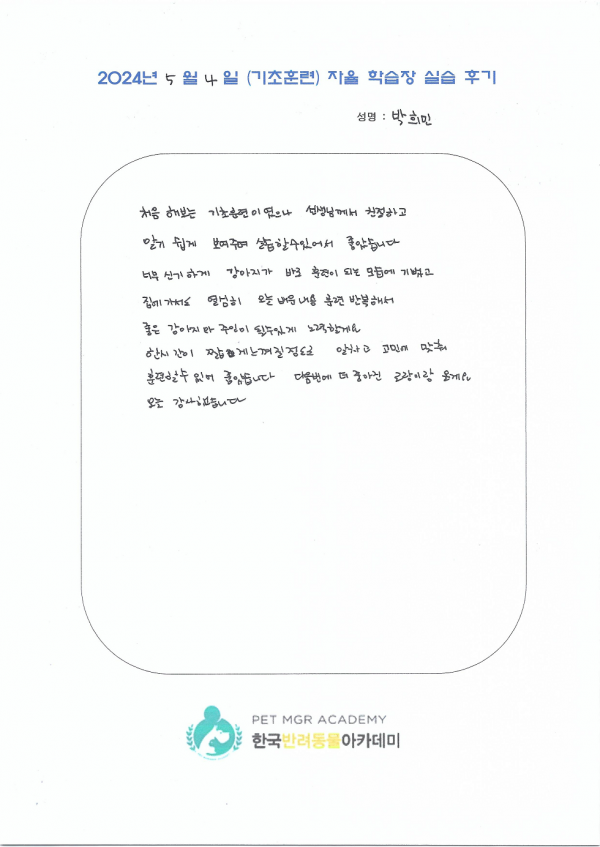 2024년 5 월 4 일 (기초훈련) 자율 학습장 실습 후기
성명 : 박희민
처음 해보는 기초훈련이였으나 선생님께서 친절하고
알기 쉽게 보여주며 실습할수있어서 좋았습니다
너무 신기하게 강아지가 바로 훈련이 되는 모습에 기뻤고
집에가서도 열심히 오늘 배운내용 훈련 반복해서
좋은 강아지와 주인이 될수있게 노력할게요
한시간이 짧게느껴질정도로 알차고 고민에 맞춰
훈련할수 있어 좋았습니다 다음번에 더 좋아진 코랑이랑 올게요
오늘 감사했습니다
PET MGR ACADEMY
한국반려동물아카데미